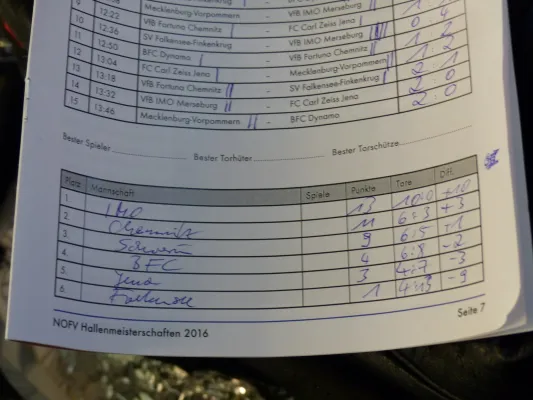 12:22 Mecklenburg-Vorpommern - VfB IMO Merseburg
10 12:36 VfB Fortuna Chemnitz - FC Carl Zeiss Jena 0 : 4
11 12:50 SV Falkensee-Finkenkrug - VfB IMO Merseburg
12 13:04 BFC Dynamo - VfB Fortuna Chemnitz 1 : 2
13 13:18 FC Carl Zeiss Jena - Mecklenburg-Vorpommern 2 : 1
14 13:32 VfB Fortuna Chemnitz - SV Falkensee-Finkenkrug 2 : 0
15 13:46 VfB IMO Merseburg - FC Carl Zeiss Jena 2 : 0
Mecklenburg-Vorpommern - BFC Dynamo
Bester Spieler Bester Torhüter Bester Torschütze
Platz Mannschaft Spiele Punkte Tore Diff.
1. IMO 13 10:0 +10
2. Chemnitz 11 6:3 +3
3. Schwerin 9 6:5 +1
4. BFC 4 6:8 -2
5. Jena 3 4:7 -3
6. Falkensee 1 4:13 -9
NOFV Hallenmeisterschaften 2016 Seite 7